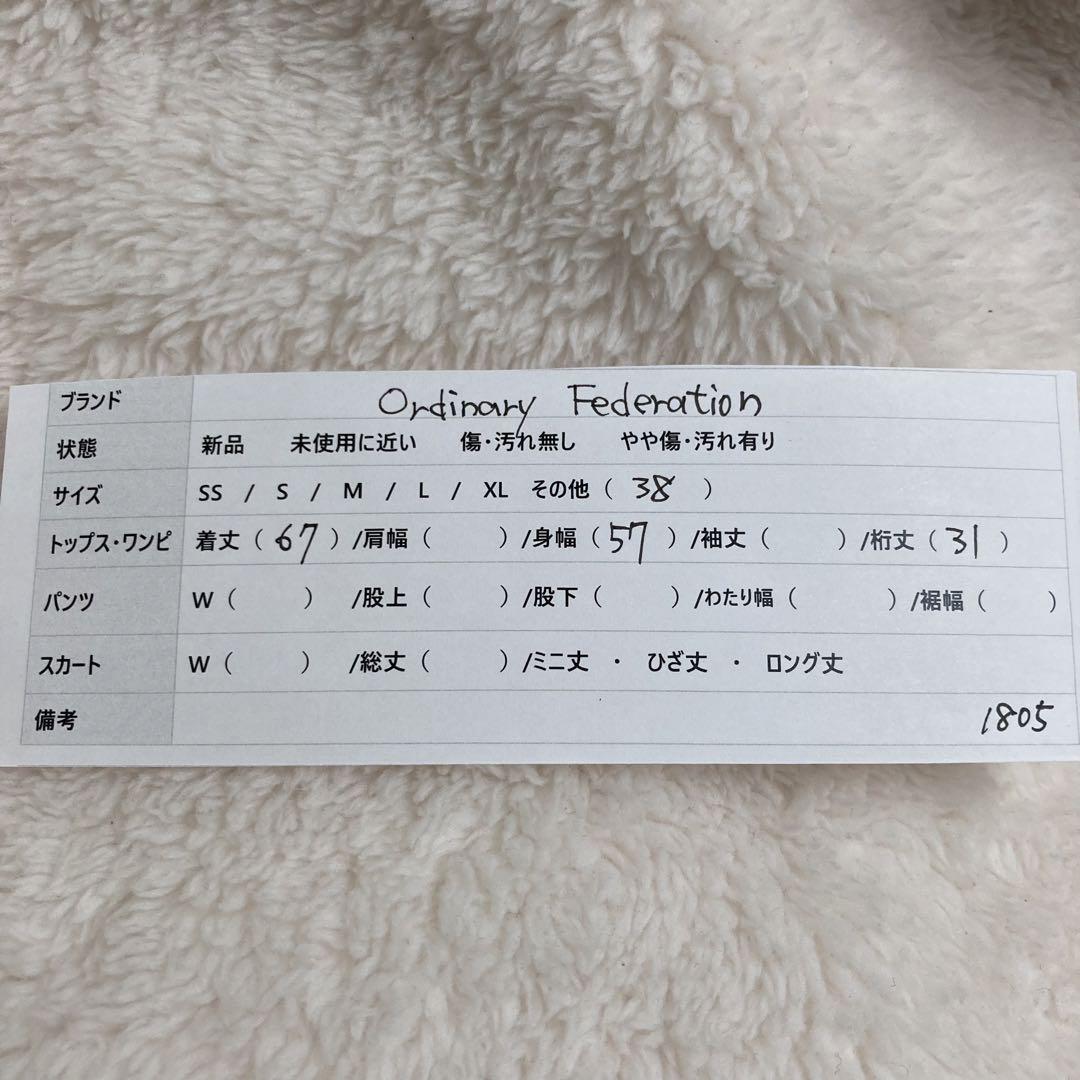 ブランド Ordinary Federation
状態 新品 未使用に近い 傷・汚れ無し やや傷・汚れ有り
サイズ SS / S / M / L / XL その他 ( 38 )
トップス・ワンピ 着丈 ( 67 ) /肩幅 ( ) /身幅 ( 57 ) /袖丈 ( ) /裄丈 ( 31 )
パンツ W ( ) /股上 ( ) /股下 ( ) /わたり幅 ( ) /裾幅 ( )
スカート W ( ) /総丈 ( ) /ミニ丈 ・ ひざ丈 ・ ロング丈
備考 1805